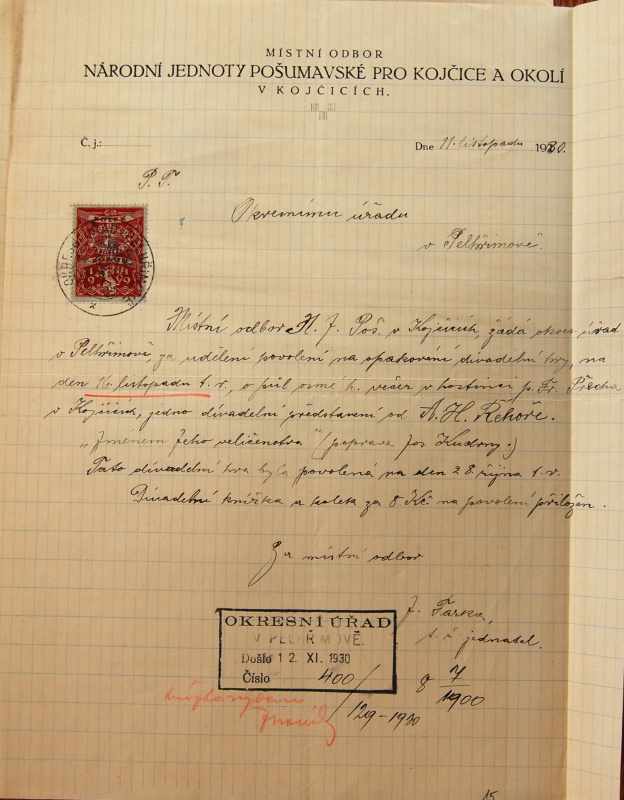 MÍSTNÍ ODBOR
NÁRODNÍ JEDNOTY POŠUMAVSKÉ PRO KOJČICE A OKOLÍ
V KOJČICÍCH.
Č. j.:
Dne 11. listopadu 1930.
P. T.
Okresnímu úřadu
v Pelhřimově.
Místní odbor N. J. Poš. v Kojčicích, žádá okres. úřad
v Pelhřimově, za udělení povolení na opakování divadelní hry, na
den 16. listopadu t. r., o půl osmé h. večer v hostinci p. Fr. Plecha
v Kojčicích, jedno divadelní představení od A. H. Řehoře.
„Jménem Jeho veličenstva" (poprava Jos Kudrny.)
Tato divadelní hra byla povolená na den 28. října t. r.
Divadelní knížka a kolek za 8 Kč. na povolení přiložen.
Za místní odbor
J. Farka,
t. č. jednatel.
OKRESNÍ ÚŘAD
V PELHŘIMOVĚ.
Došlo 12. XI. 1930
Číslo 400/
129-1930
8 7/1900
15